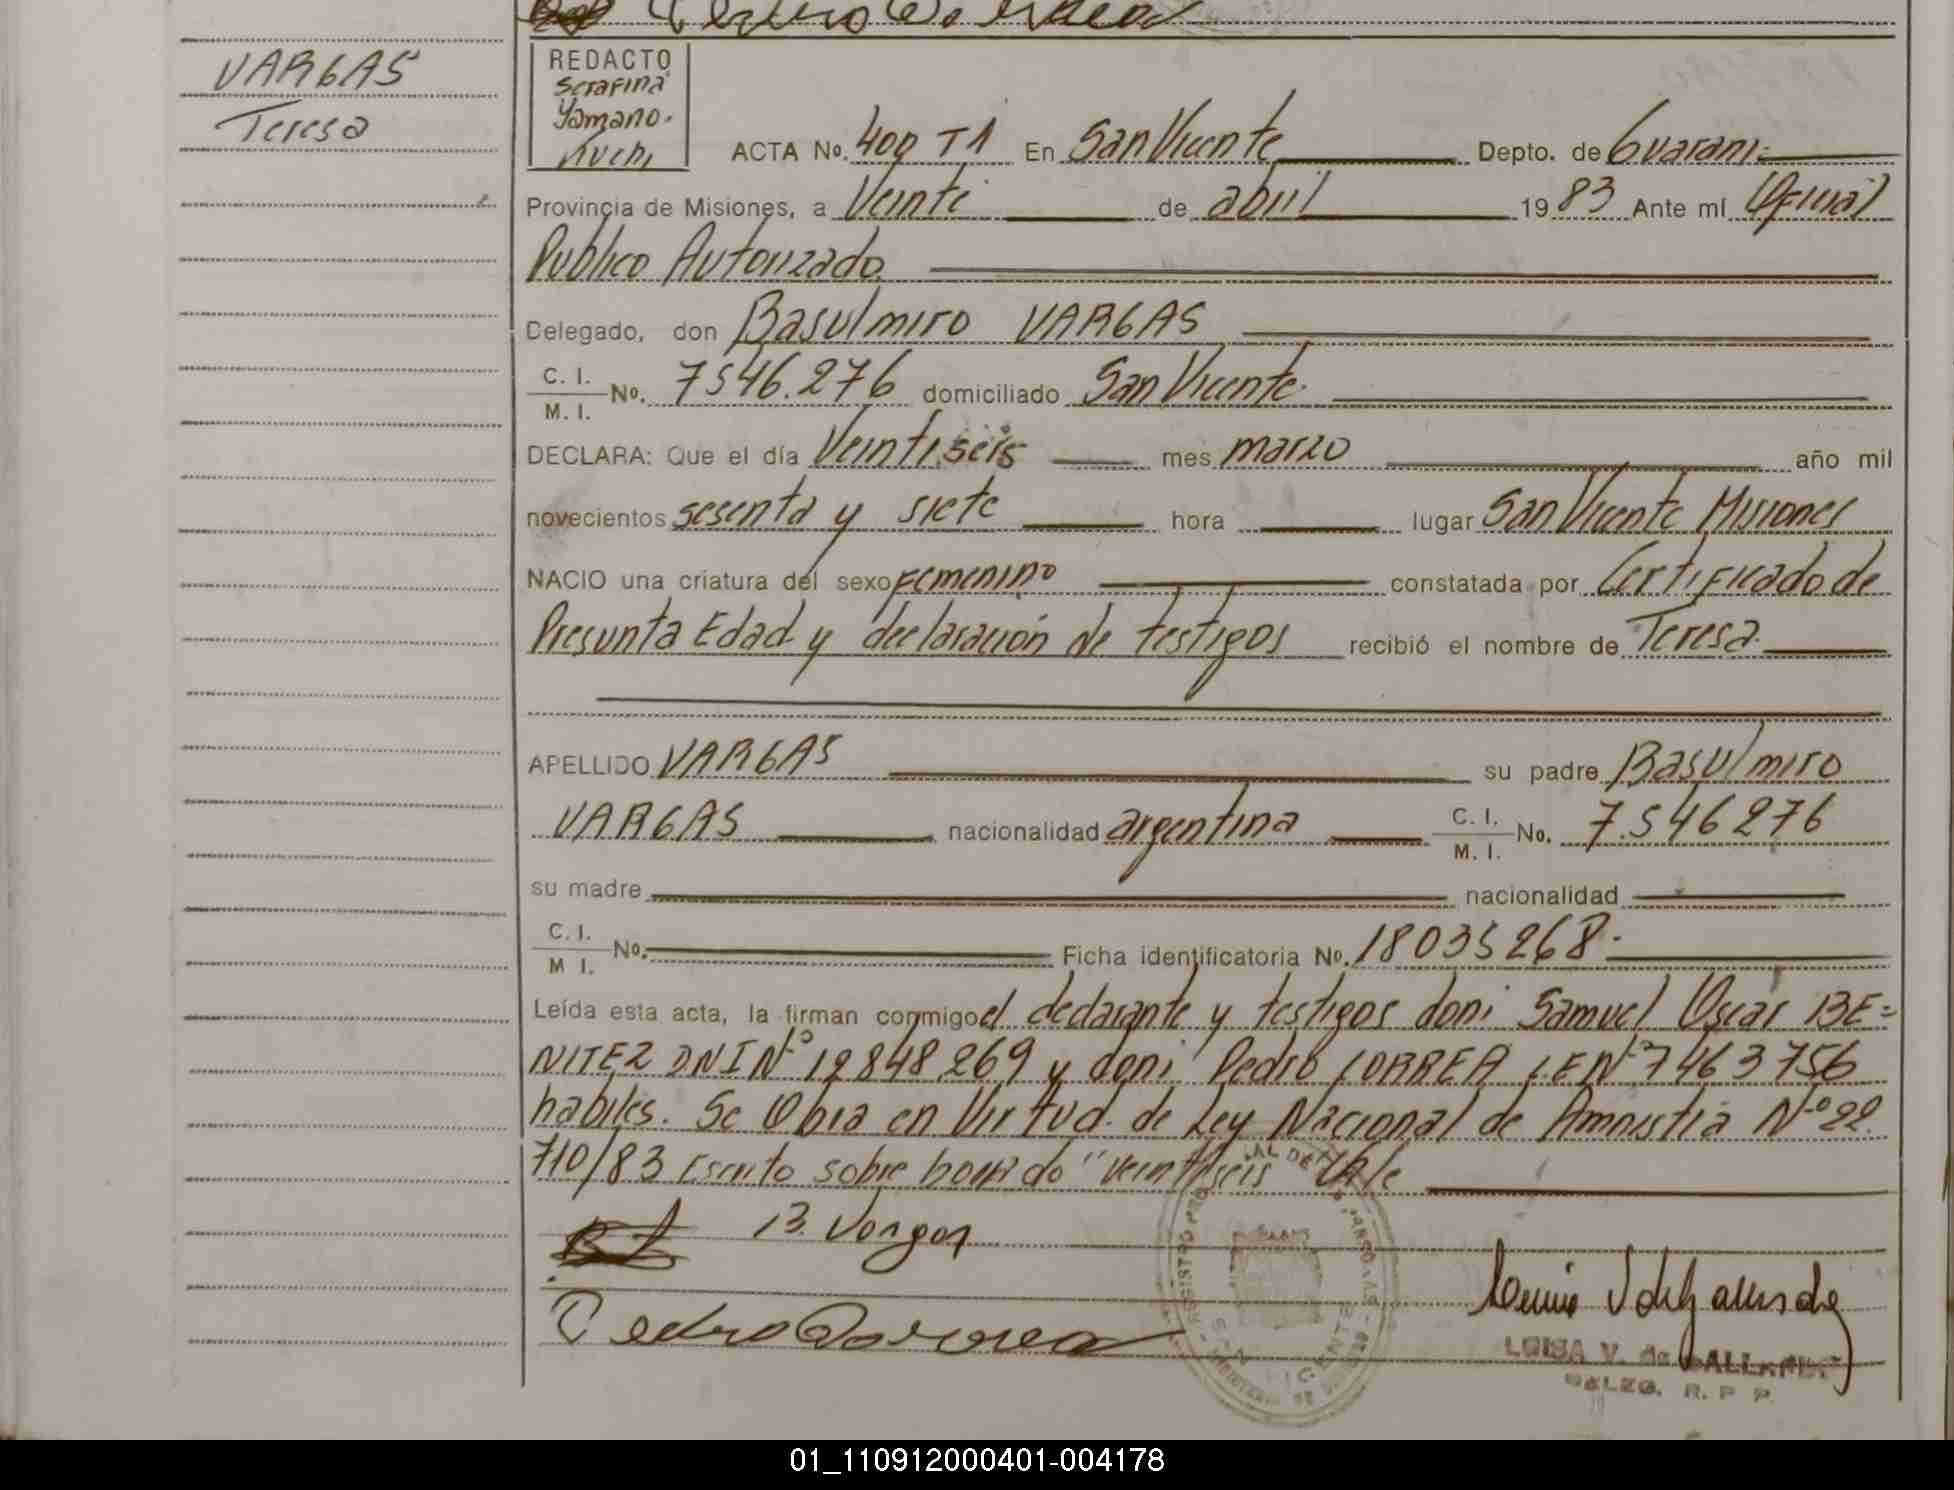 VARGAS
Teresa
REDACTO
Serafina
Yamano.
Kuchi
ACTA No. 400 T1 En San Vicente Depto. de Guarani
Provincia de Misiones, a Veinte de abril 1983 Ante mí Oficial
Publico Autorizado
Delegado, don Basulmiro VARGAS
C. I.
M. I. No. 7546.276 domiciliado San Vicente
DECLARA: Que el día Veintiseis mes marzo año mil
novecientos sesenta y siete hora lugar San Vicente Misiones
NACIO una criatura del sexo Femenino constatada por Certificado de
Presunta Edad y declaración de testigos recibió el nombre de Teresa
APELLIDO VARGAS su padre Basulmiro
VARGAS nacionalidad argentina C. I.
M. I. No. 7.546276
su madre nacionalidad
C. I.
M I. No. Ficha identificatoria No. 18035268
Leída esta acta, la firman conmigo el declarante y testigos don: Samuel Oscar BE=
NITEZ DNI Nº 12848269 y don: Pedro CORREA LE Nº 7463756
habiles. Se Obra en Virtud de Ley Nacional de Amnistia Nº 22.
710/83 Escrito sobre borrado "veintiseis" Vale
B. Vargas
Pedro Correa
LUISA V. de GALLARDO
DELEG. R. P P.
01_110912000401-004178